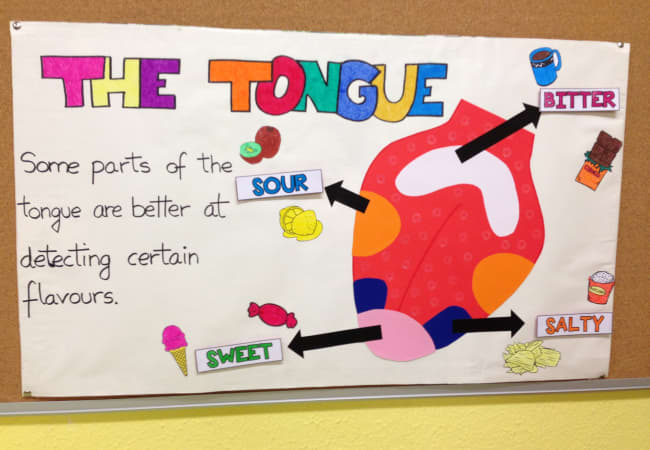 THE TONGUE
BITTER
Some parts of the
SOUR
tongue are better at
detecting certain
flavours.
SALTY
SWEET